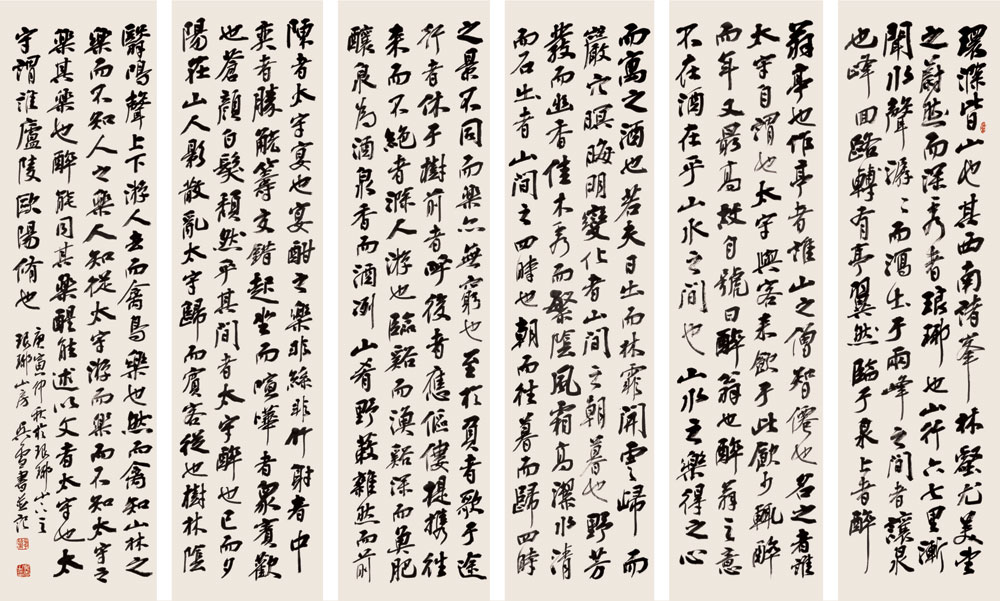 環滁皆山也其西南諸峯林壑尤美望
之蔚然而深秀者琅琊也山行六七里漸
聞水聲潺〻而瀉出于兩峰之間者讓泉
也峰回路轉有亭翼然臨于泉上者醉
翁亭也作亭者誰山之僧智僊也名之者誰
太守自謂也太守與客來飲于此飲少輒醉
而年又最高故自號曰醉翁也醉翁之意
不在酒在乎山水之間也山水之樂得之心
而寓之酒也若夫日出而林霏開雲歸而
巖穴暝晦明變化者山間之朝暮也野芳
發而幽香佳木秀而繁陰風霜高潔水清
而石出者山間之四時也朝而往暮而歸四時
之景不同而樂亦無窮也至於負者歌于途
行者休于樹前者呼後者應傴僂提攜往
來而不絕者滁人游也臨谿而漁谿深而魚肥
釀泉為酒泉香而酒冽山肴野蔌雜然而前
陳者太守宴也宴酣之樂非絲非竹射者中
奕者勝觥籌交錯起坐而喧嘩者眾賓歡
也蒼顏白髮頹然乎其間者太守醉也已而夕
陽在山人影散亂太守歸而賓客從也樹林陰
翳鳴聲上下游人去而禽鳥樂也然而禽知山林之
樂而不知人之樂人知從太守游而樂而不知太守之
樂其樂也醉能同其樂醒能述以文者太守也太
守謂誰廬陵歐陽脩也
庚寅仲秋於琅琊山
琅琊山房吳雪書並記